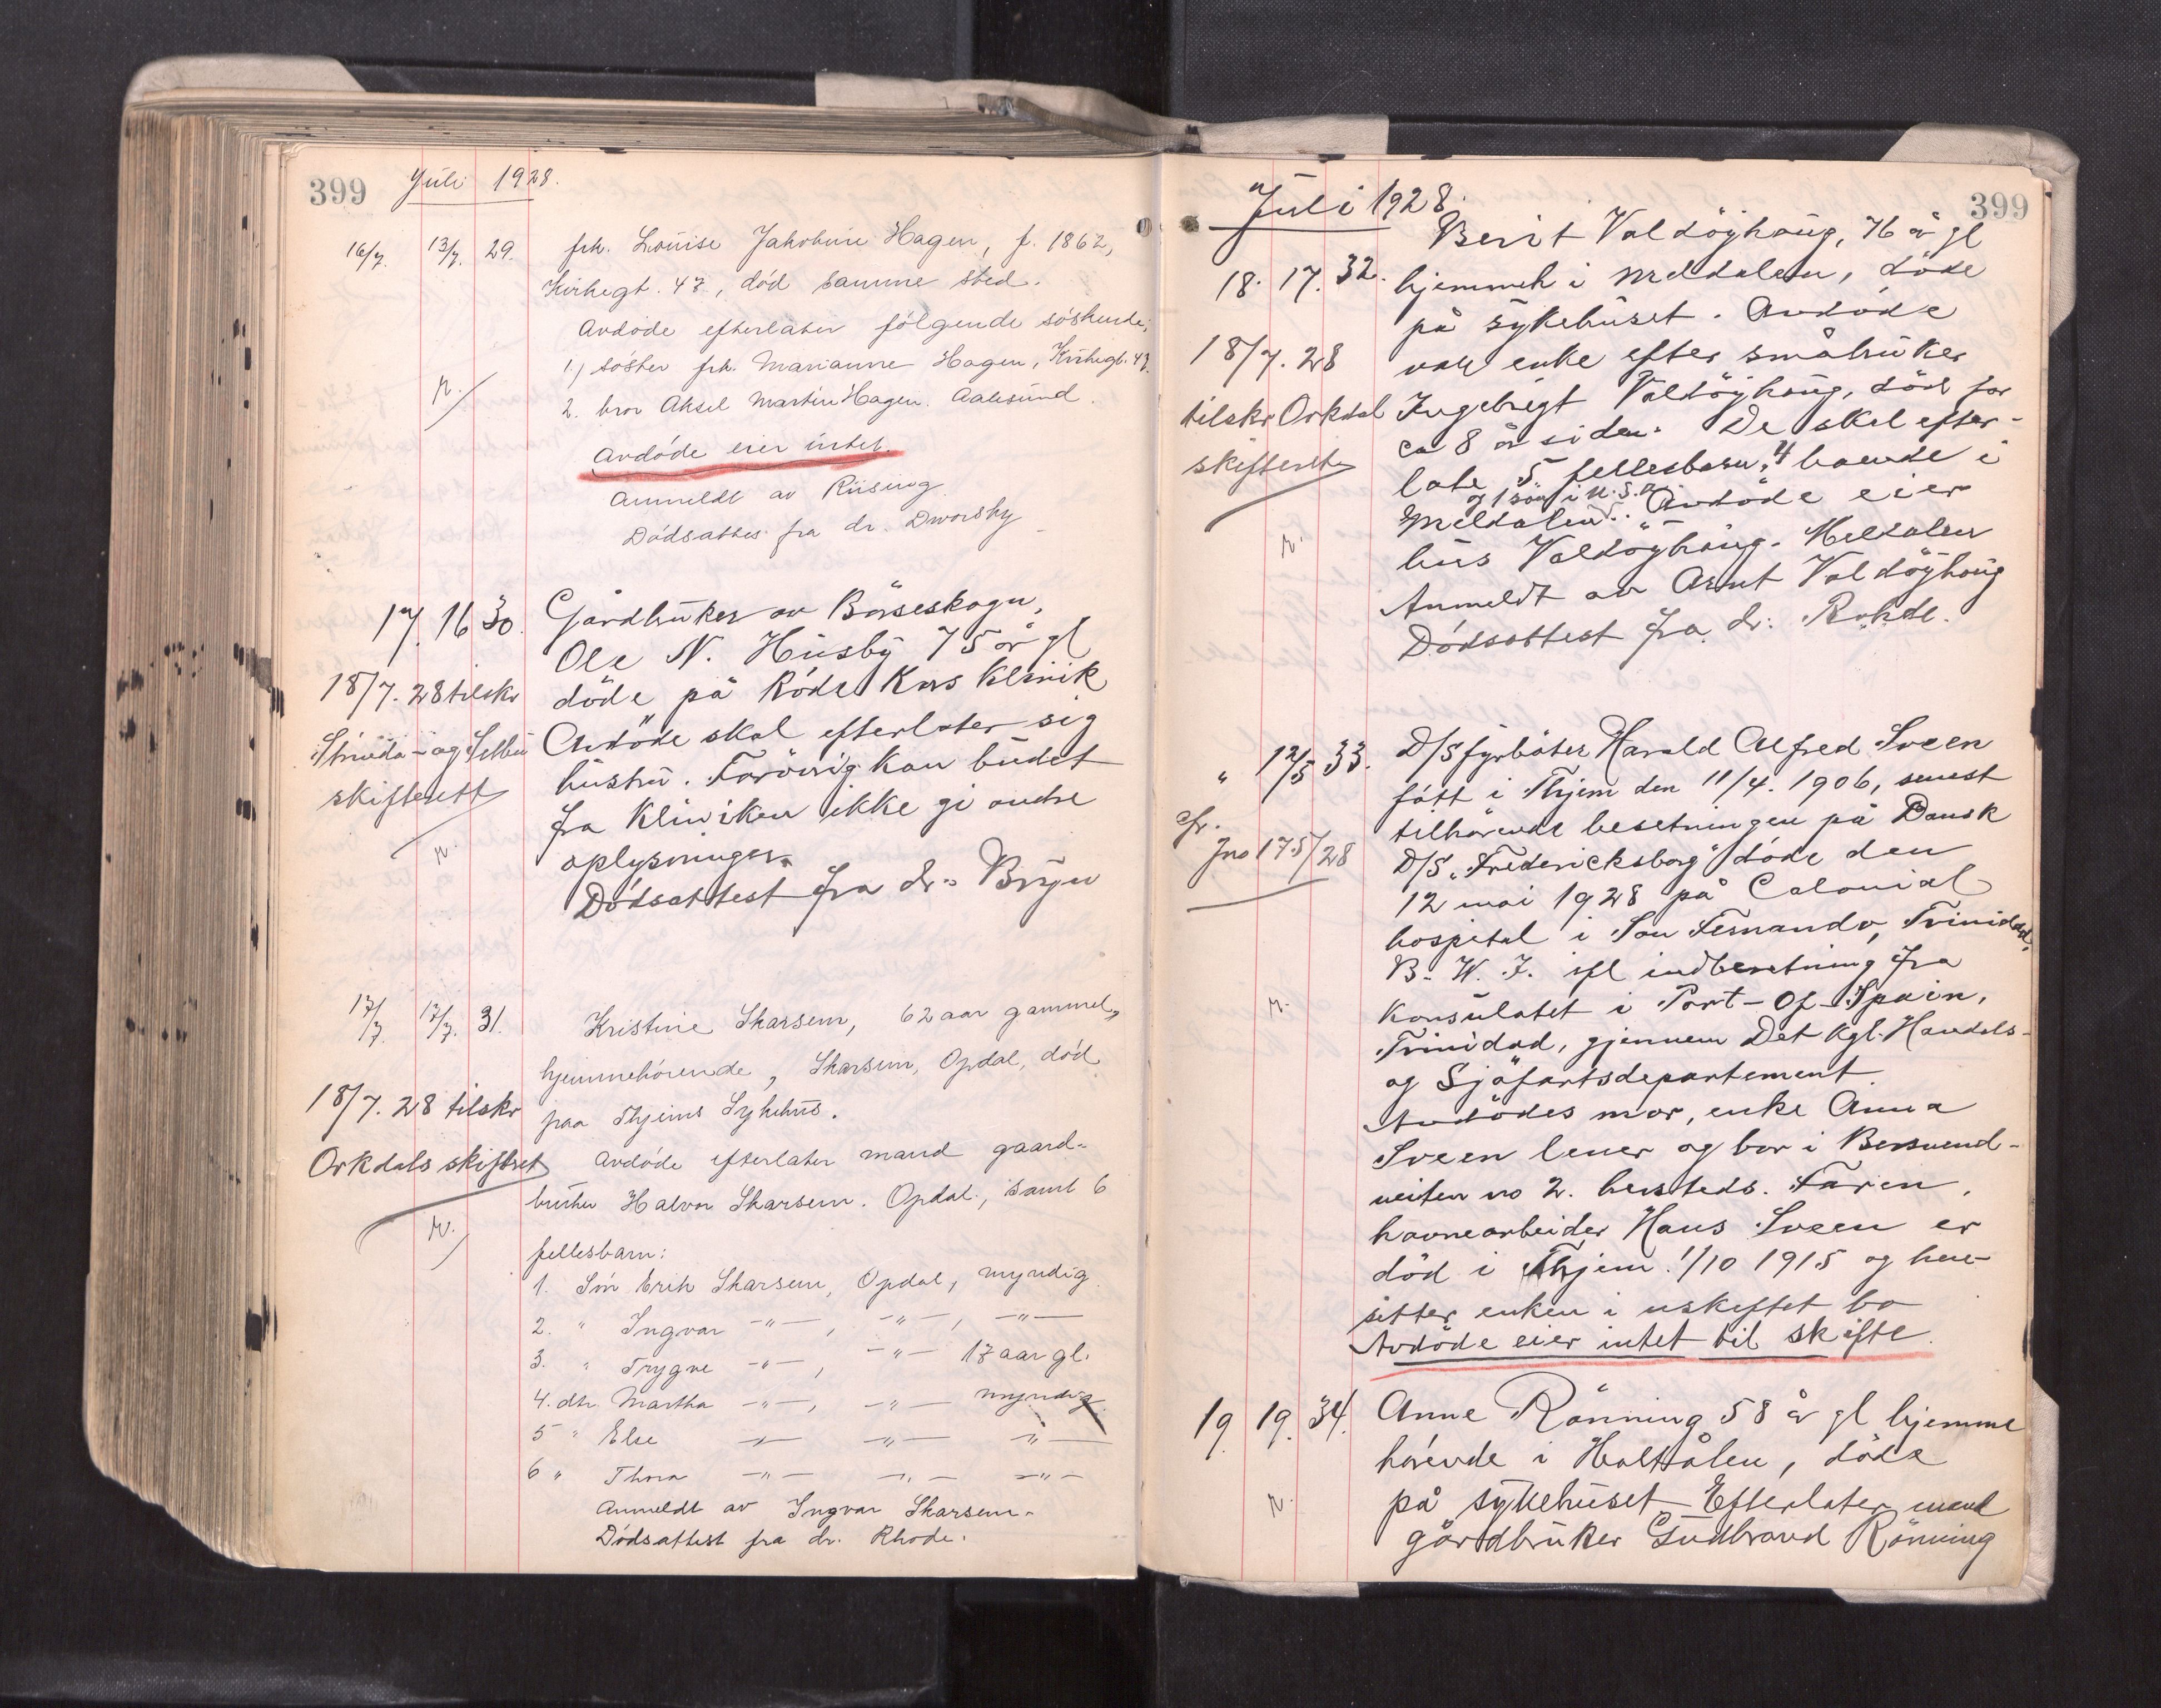 399 Juli 1928.
16/7. 13/7. 29. frk. Louise Jakobine Hagen, f. 1862,
Kirkegt. 47, död samme sted.
Avdöde efterlater fölgende söskende;
1.) söster frk. Marianne Hagen, Kirkegt. 47.
2. bror Aksel Martin Hagen. Aalesund.
Avdöde eier intet.
Anmeldt av Riising
Dödsattes fra dr. Dworsky
17. 16 30. Gårdbruker av Börseskogn,
Ole N. Husby 75 år gl
18/7. 28 tilskr döde på Röde Kors Klinik
Strinda- og Selbu Avdöde skal efterlater sig
skifterett hustru. Forövrig kan budet
fra Kliniken ikke gi andre
oplysninger.
Dödsattest fra dr. Bryn
17/7. 17/7. 31. Kristine Skarsem, 62 aar gammel,
hjemmehörende, Skarsem, Opdal, död
18/7. 28 tilskr paa Thjems Sykehus.
Orkdals skifteret Avdöde efterlater mand gaard-
bruker Halvor Skarsem. Opdal, samt 6
fellesbarn:
1. Sön Erik Skarsem, Opdal, myndig
2. " Ingvar -"-, -"-, -"-
3. " Trygve -"-, -"- 17 aar gl.
4. dtr. Martha -"-, -"- myndig
5 " Else -"- -"- -"-
6 " Thora -"- -"- -"-
Anmeldt av Ingvar Skarsem.
Dödsattest fra dr. Rhode.
Juli 1928. 399
Berit Valdöyhaug, 76 år gl
18. 17. 32. hjemmeh i Meldalen, döde
på sykehuset. Avdöde
18/7. 28 var enke efter småbruker
tilskr Orkdal Ingebrigt Valdöyhaug, död for
skifterett ca 8 år siden. De skal efter-
late 5 fellesbarn, 4 boende i
og 1 sön i U.S.A.
Meldalen. Avdöde eier
hus Valdöyhaug. Meldalen
Anmeldt av Arnt Valdöyhaug
Dödsattest fra dr. Rohde.
" 12/5 33. D/S fyrböter Harald Alfred Sveen
fött i Thjem den 11/4. 1906, senest
cfr. tilhörende besetningen på Dansk
Jno 175/28 D/S „Fredericksborg" döde den
12 mai 1928 på Colonial
hospital i San Fernando, Trinidad,
B. W. I. ifl indberetning fra
Konsulatet i Port-of-Spain,
Trinidad, gjennem Det kgl. Handels-
og Sjöfartsdepartement.
Avdödes mor, enke Anna
Sveen lever og bor i Bersvend-
veiten no 2. hersteds. Faren,
havnearbeider Hans Sveen er
död i Thjem 1/10 1915 og hen-
sitter enken i uskiftet bo
Avdöde eier intet til skifte.
19. 19. 34. Anne Rönning 58 år gl hjemme
hörende i Holtålen, döde
på sykehuset Efterlater mand
gårdbruker Gudbrand Rönning